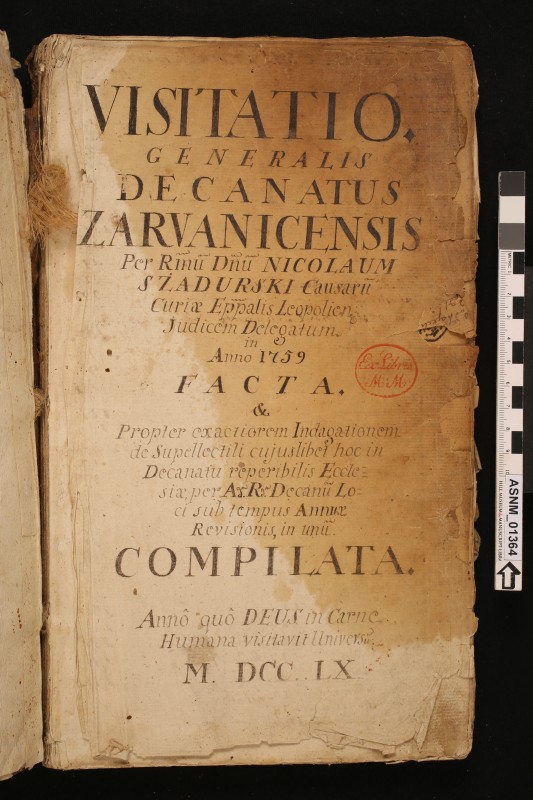 VISITATIO.
GENERALIS
DECANATUS
ZARVANICENSIS
Per Rm̅ũ Dn̅ũ NICOLAUM
SZADURSKI Causarũ
Curiæ Epp̅alis Leopolien.
Judicem Delegatum
in
Anno 1759
FACTA.
&
Propter exactiorem Indagationem
de Supellectili cujuslibet hoc in
Decanatu reperibilis Eccle=
siæ, per Decanũ Lo=
ci sub tempus Annuæ
Revisionis, in unũ
COMPILATA.
Annô quô DEUS in Carne
Humana visitavit Universũ
M. DCC. LX
Ex Libris
M. M.
ASNM_01364